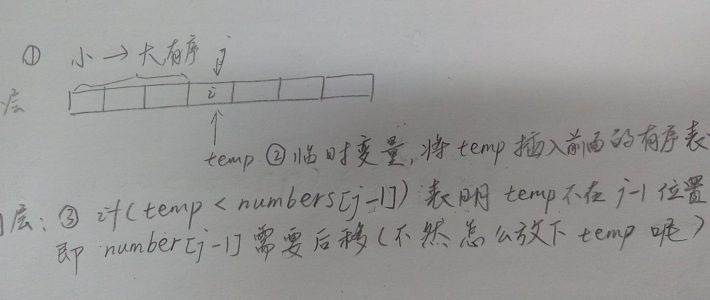 ① 小→大有序 j
层
i
temp ②临时变量,将temp插入前面的有序表
层: ③ if(temp < numbers[j-1]) 表明 temp不在 j-1 位置
即 number[j-1] 需要后移(不然怎么放下 temp 呢)